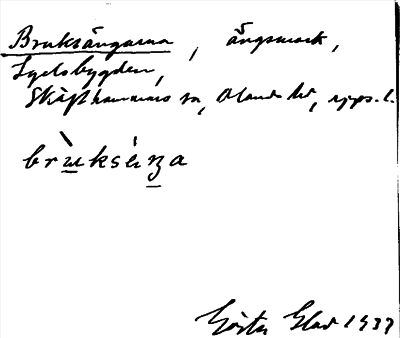 Bruksängarna, ängsmark,
Lyelsbygden,
Skäfthammars sn, Olands hd, Upps. l.
brùkséṉa
Gösta Glad 1933